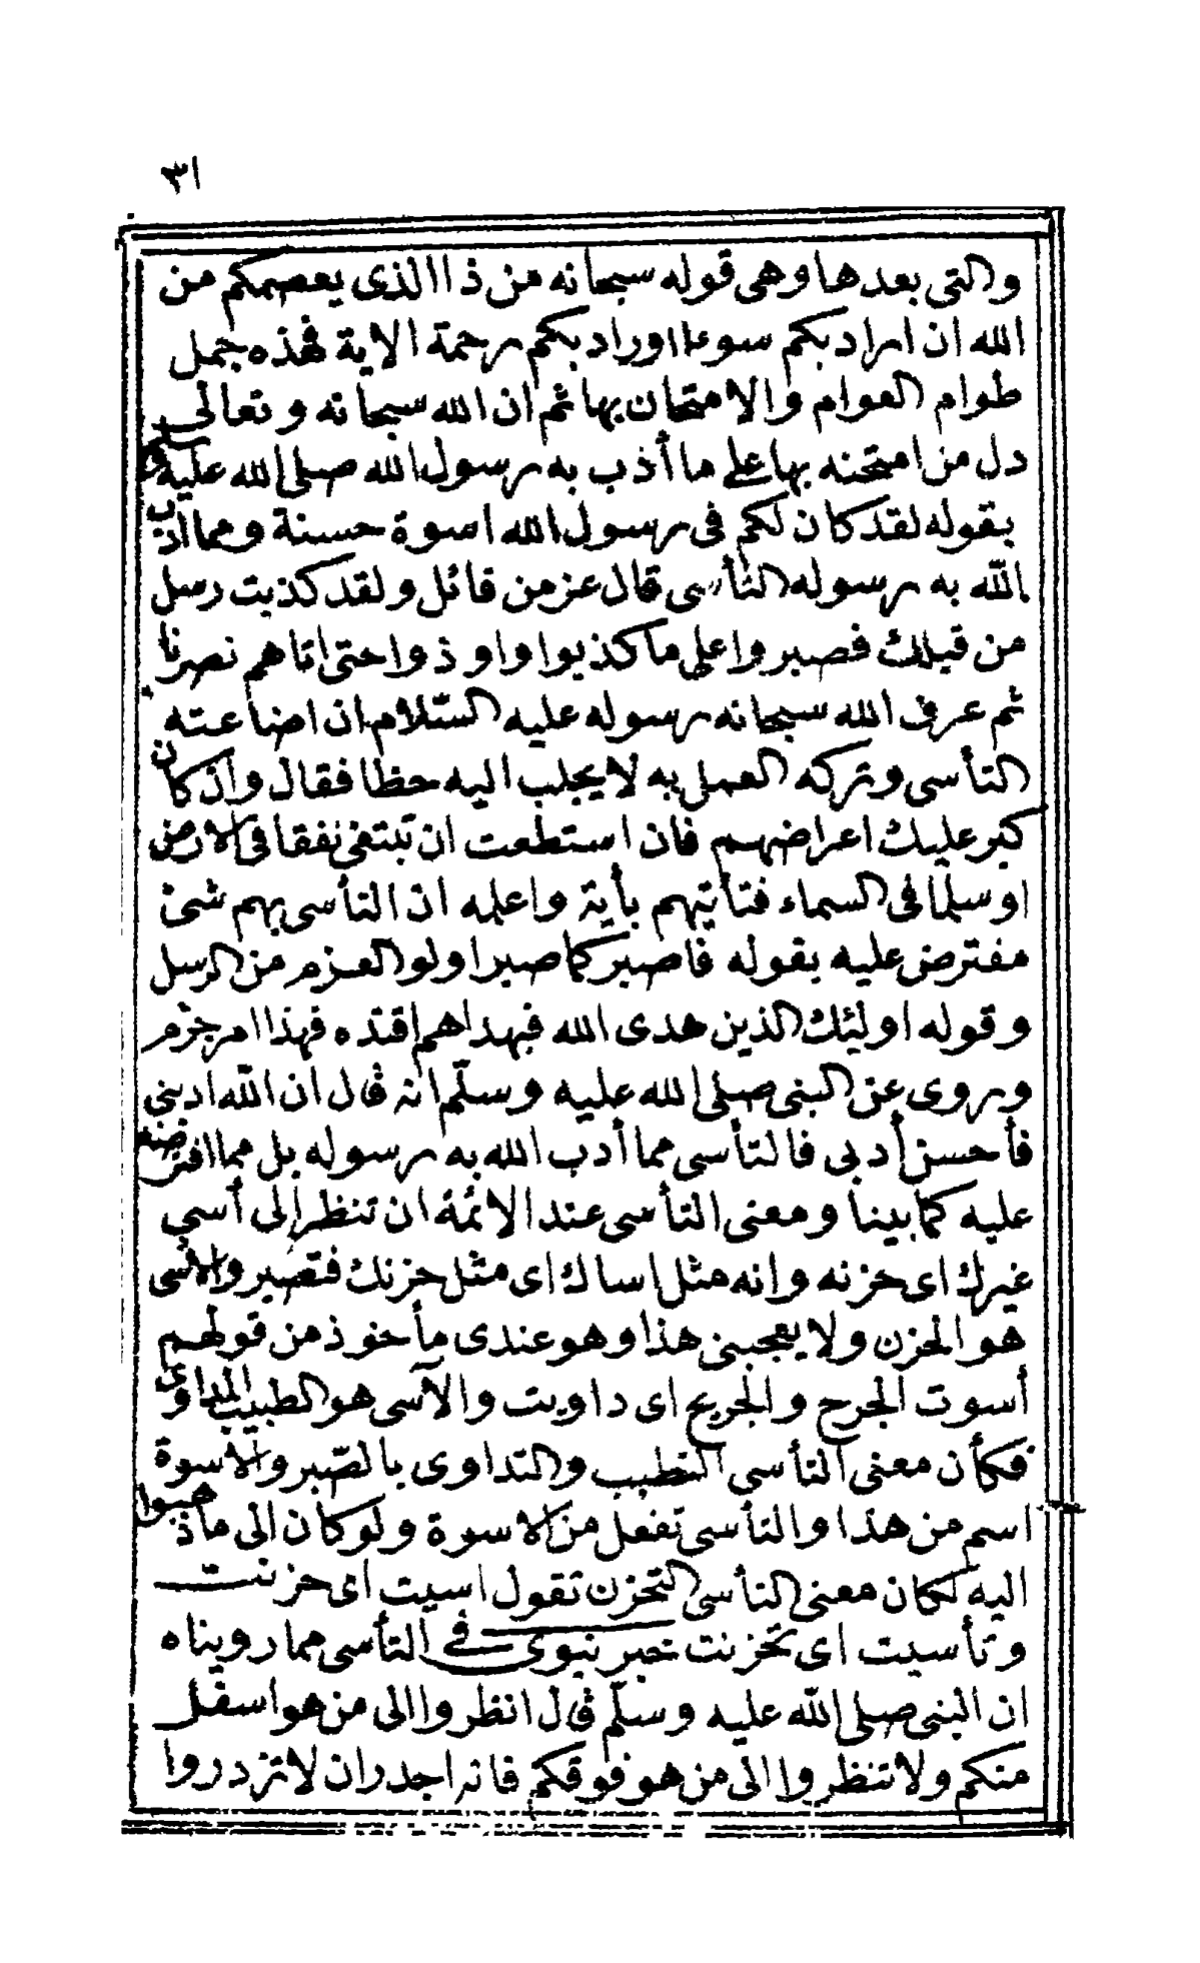 ٣١
والتي بعدها وهي قوله سبحانه من ذا الذى يعصمكم من
الله ان اراد بكم سوءا او راد بكم رحمة الاية فهذه جمل
طوام العوام والامتحان بها ثم ان الله سبحانه وتعالى
دل من امتحنه بها على ما أذب به رسول الله صلى الله عليه وسلم
بقوله لقد كان لكم فى رسول الله اسوة حسنة ومما ادب
الله به رسوله التأسى قال عز من قائل ولقد كذبت رسل
من قبلك فصبروا على ما كذبوا واوذوا حتى اتاهم نصرنا
ثم عرف الله سبحانه رسوله عليه السّلام ان اضاعته
التأسى وتركه العمل به لا يجلب اليه حظا فقال وان كان
كبر عليك اعراضهم فان استطعت ان تبتغى نفقا فى الارض
او سلما فى السماء فتأتيهم بأية واعلمه ان التأسى بهم شئ
مفترض عليه بقوله فاصبر كما صبر اولو العزم من الرسل
وقوله اولئك الذين هدى الله فبهداهم اقتده فهذا امر جزم
وروى عن النبى صلى الله عليه وسلّم انه قال ان اللّه ادبنى
فأحسن أدبى فالتأسى مما أدب الله به رسوله بل مما افترضه
عليه كما بينا ومعنى التأسى عند الائمة ان تنظر إلى أسي
غيرك اى حزنه وانه مثل اساك اى مثل حزنك فتصبر والاسى
هو الحزن ولا يعجبنى هذا وهو عندى مأخوذ من قولهم
أسوت الجرح والجريح اى داويت والآسى هو الطبيب المداوى
فكأن معنى التأسى التطبب والتداوى بالصّبر والاسوة
اسم من هذا والتأسى تفعل من الاسوة ولو كان الى ما ذهبوا
اليه لكان معنى التأسى التحزن تقول اسيت اى حزنت
وتأسيت اى تحزنت خبر نبوى فى التأسى مما رويناه
ان النبى صلى اللّه عليه وسلّم قال انظروا الى من هو اسفل
منكم ولا تنظروا الى من هو فوقكم فانه اجدر ان لا تزدروا